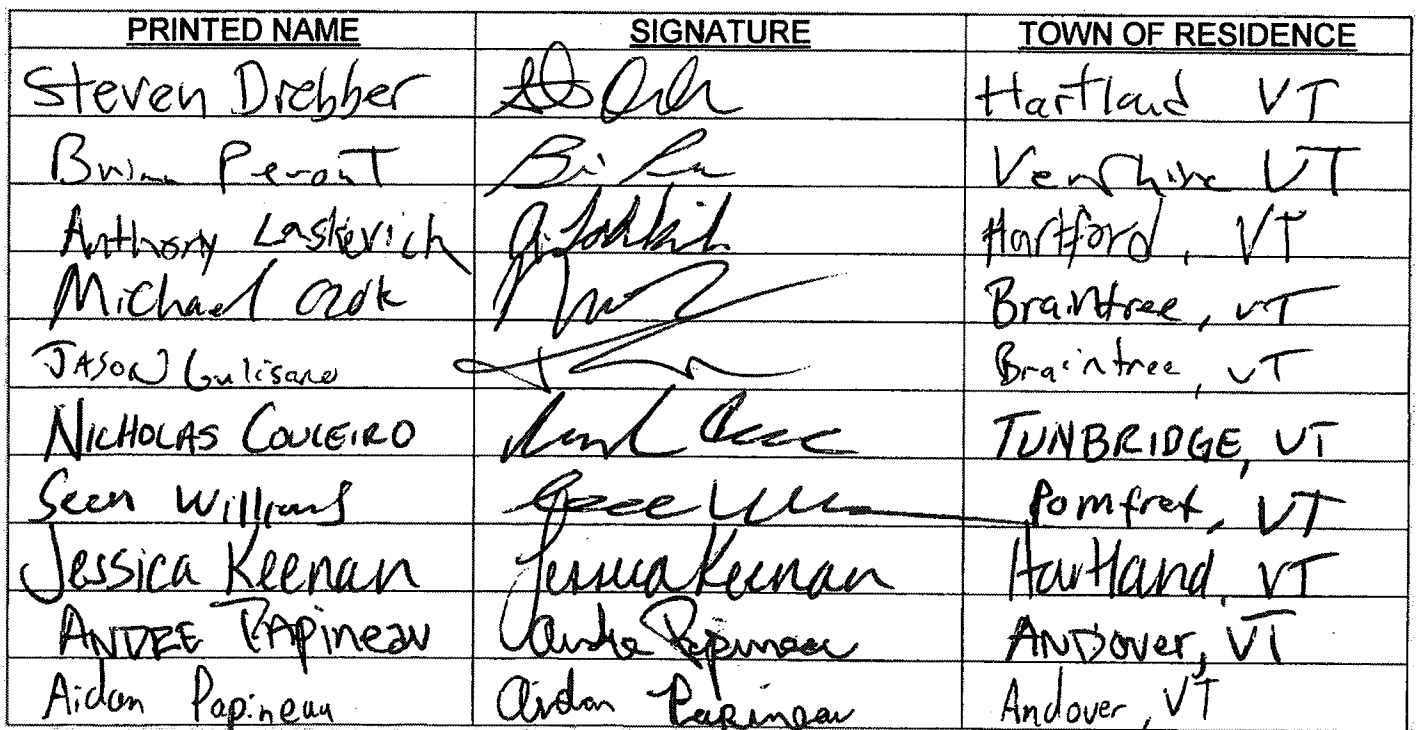 PRINTED NAME SIGNATURE TOWN OF RESIDENCE
Steven Drebber Hartland VT
Peront Vershire VT
Anthony Laskevich Hartford, VT
Michael Braintree, VT
JASON Gulisano Braintree, VT
NICHOLAS COUCEIRO TUNBRIDGE, VT
Sean Williams Pomfret, VT
Jessica Keenan Jessica Keenan Hartland, VT
ANDRE PAPineau Andre Papineau ANDOVER, VT
Aidan Papineau Aidan Papineau Andover, VT